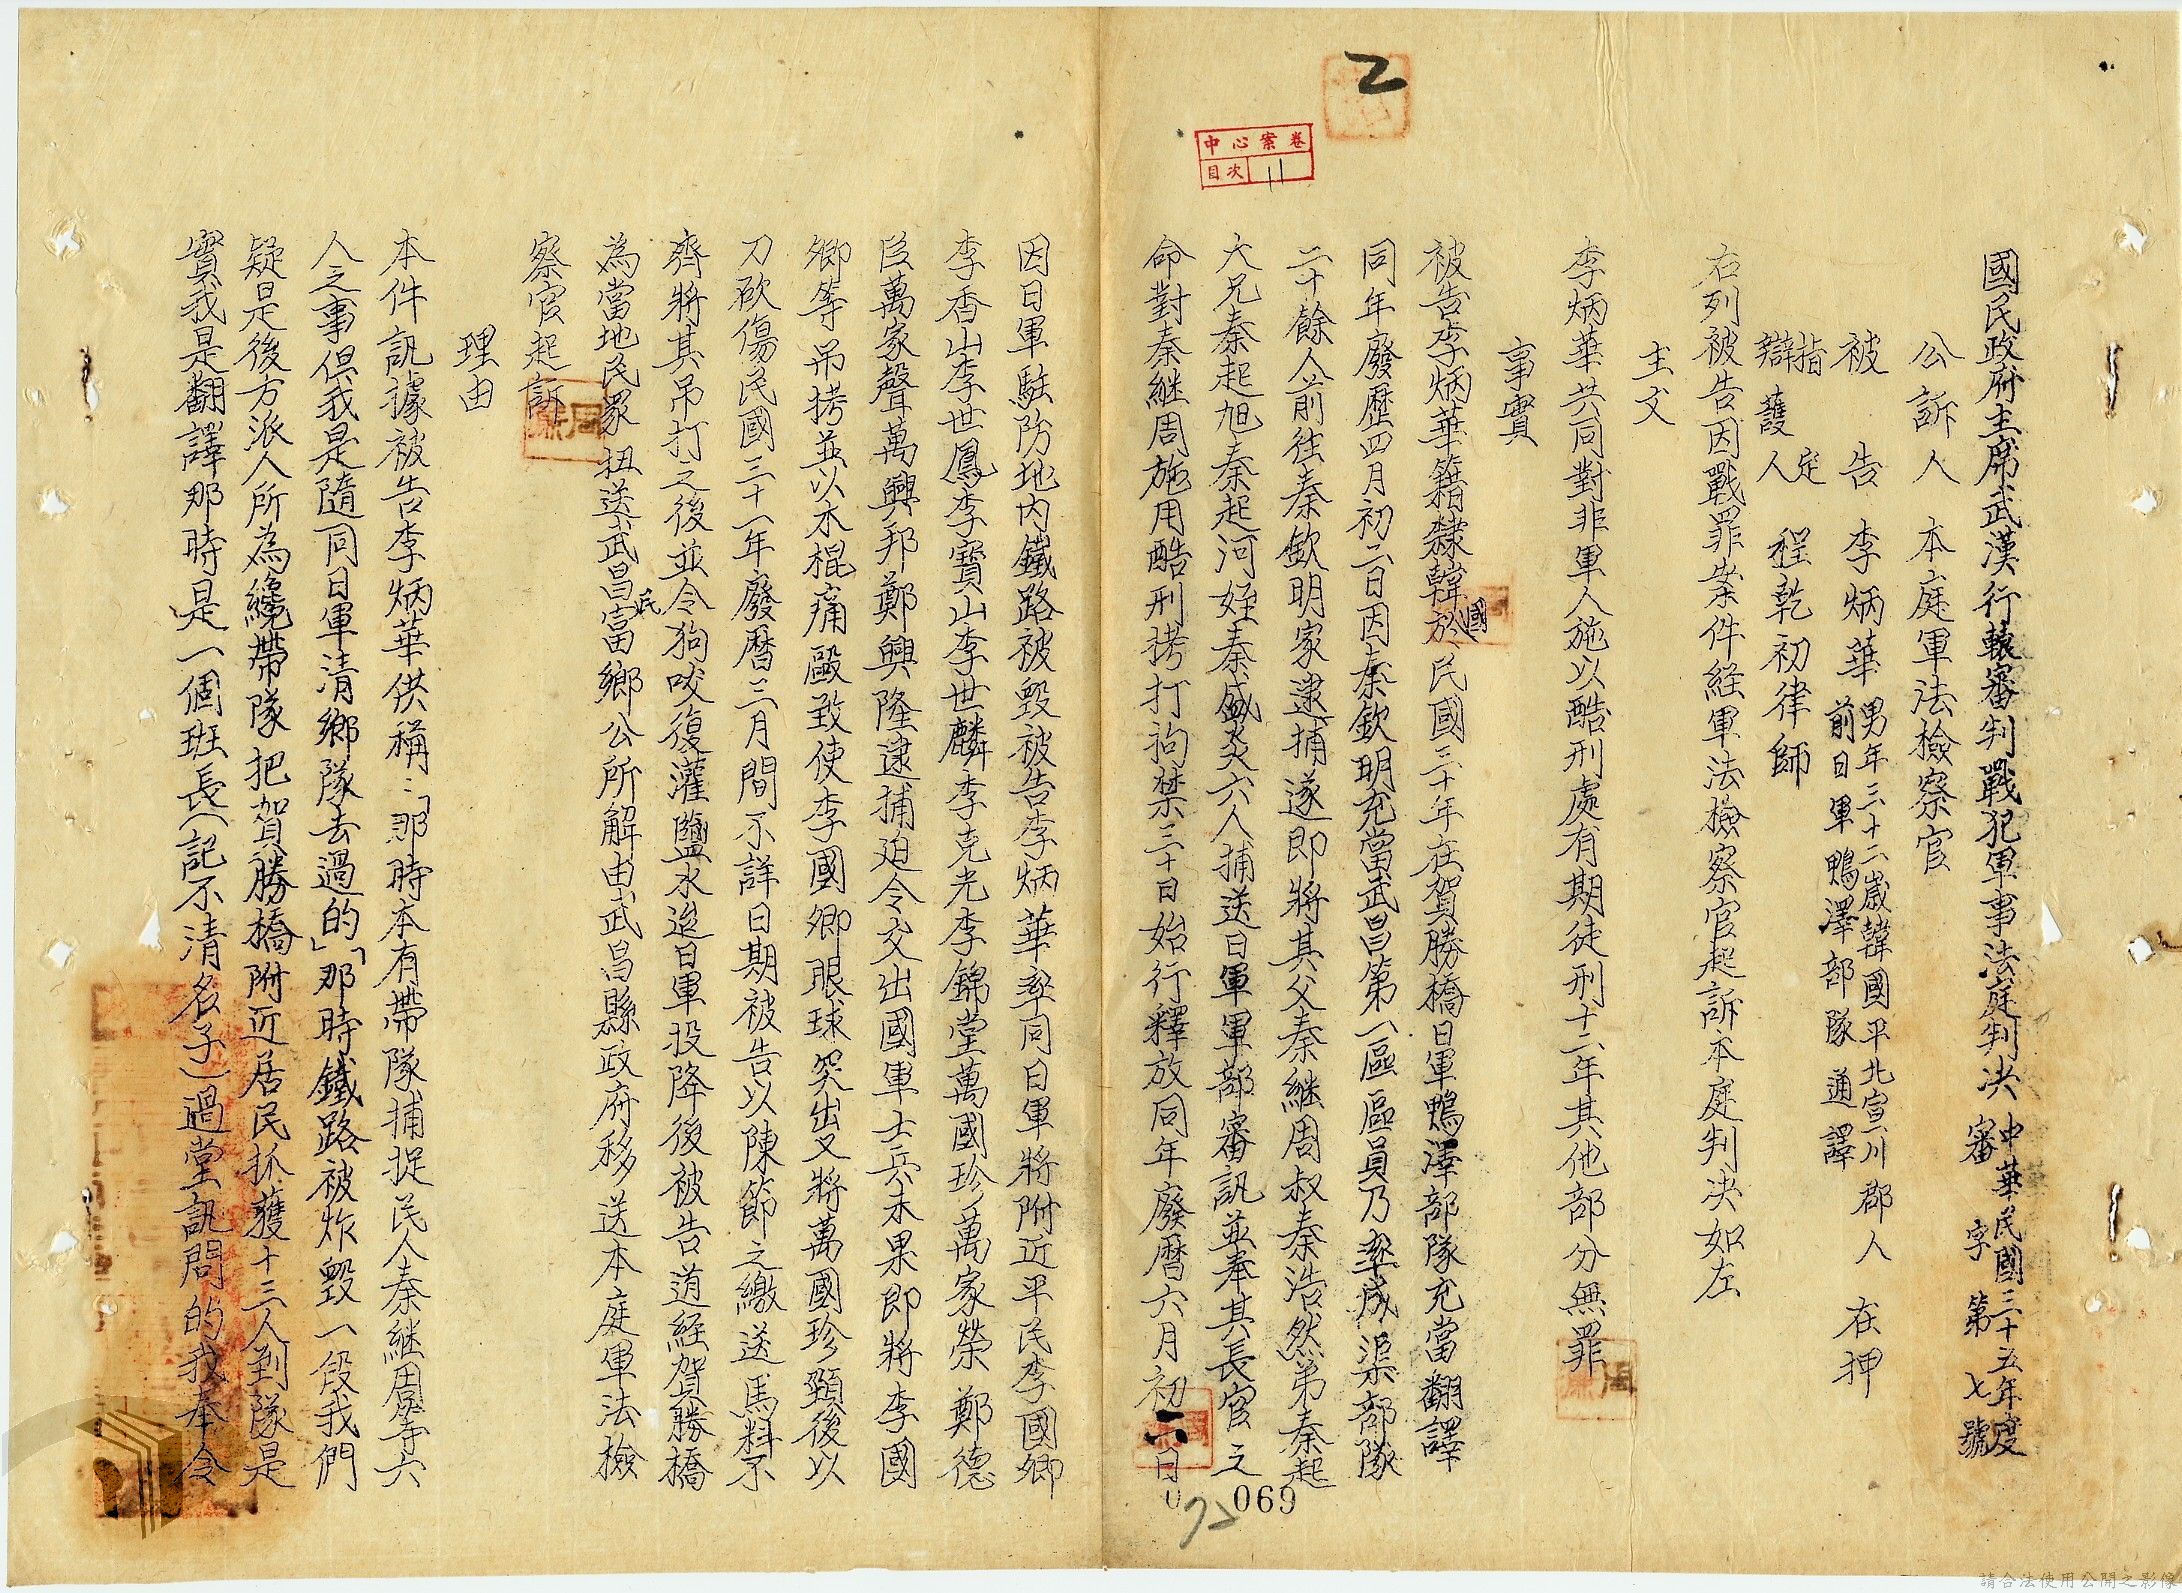 乙
中心案卷
目次 11
國民政府主席武漢行轅審判戰犯軍事法庭判決 中華民國三十五年度
審字第七號
公訴人 本庭軍法檢察官
被告 李炳華 男年三十二歲韓國平北宣川郡人 在押
前日軍鴨澤部隊通譯
指定
辯護人 程乾初律師
右列被告因戰罪案件經軍法檢察官起訴本庭判決如左
主文
李炳華共同對非軍人施以酷刑處有期徒刑十二年其他部分無罪
事實
被告李炳華籍隸韓國於民國三十年在賀勝橋日軍鴨澤部隊充當翻譯
同年廢歷四月初二日因秦欽明充當武昌第一區區員乃率成渠部隊
二十餘人前往秦欽明家逮捕遂即將其父秦繼周叔秦浩然弟秦起
大兄秦起旭秦起河姪秦盛炎六人捕送日軍軍部審訊並奉其長官之
命對秦繼周施用酷刑拷打拘禁三十日始行釋放同年廢曆六月初二日
因日軍駐防地內鐵路被毀被告李炳華率同日軍將附近平民李國卿
李香山李世鳳李寶山李世麟李克光李錦堂萬國珍萬家榮鄭德
臣萬家聲萬興邦鄭興隆逮捕迫令交出國軍士兵未果即將李國
卿等吊拷並以木棍痛毆致使李國卿眼球突出又將萬國珍頸後以
刀砍傷民國三十一年廢曆三月間不詳日期被告以陳節之繳送馬料不
齊將其吊打之後並令狗咬復灌鹽水迨日軍投降後被告道經賀勝橋
為當地民眾扭送武昌富民鄉公所解由武昌縣政府移送本庭軍法檢
察官起訴
理由
本件訊據被告李炳華供稱：「那時本有帶隊捕捉民人秦繼周等六
人之事但我是隨同日軍清鄉隊去過的」「那時鐵路被炸毀一段我們
疑是後方派人所為纔帶隊把賀勝橋附近居民抓獲十三人到隊是
實我是翻譯那時是一個班長（記不清名子）過堂訊問的我奉令
069
請合法使用公開之影像